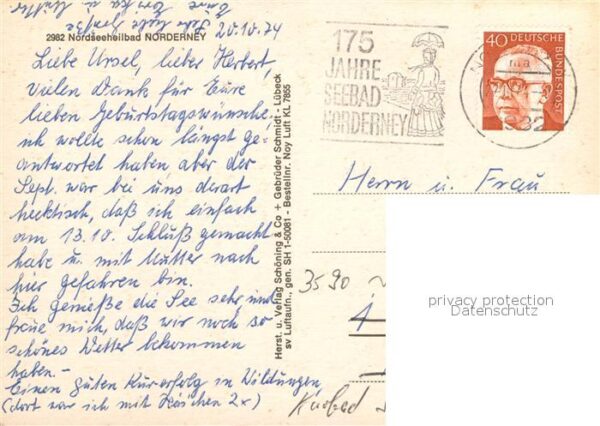 2982 Nordseeheilbad NORDERNEY
20.10.74
Liebe Ursel, lieber Herbert,
vielen Dank für Eure
lieben Geburtstagswünsche
ich wollte schon längst ge-
antwortet haben aber der
Sept. war bei uns derart
hecktisch, daß ich einfach
am 13.10. Schluß gemacht
habe u. mit Mutter nach
hier gefahren bin.
Ich genieße die See sehr und
freue mich, daß wir noch so
schönes Wetter bekommen
haben.-
Einen guten Kurerfolg in Wildungen
(dort war ich mit 2x)
Eure
Herst. u. Verlag Schöning & Co + Gebrüder Schmidt - Lübeck
sv Luftaufn., gen. SH 1-50081 - Bestellnr. Noy Luft KL 7855
175
JAHRE
SEEBAD
NORDERNEY
40 DEUTSCHE
BUNDESPOST
Herrn u. Frau
3590
1
Kurbad
privacy protection
Datenschutz